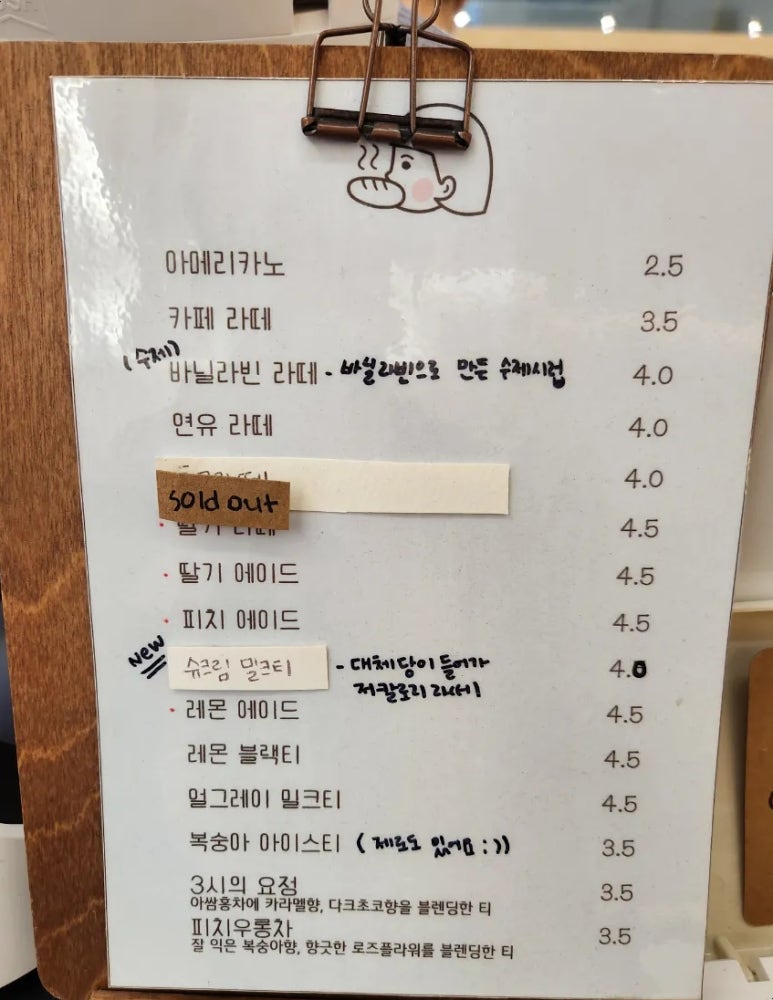 아메리카노 2.5
카페 라떼 3.5
(수제)
바닐라빈 라떼 - 바닐라빈으로 만든 수제시럽 4.0
연유 라떼 4.0
sold out 4.0
딸기 라떼 4.5
딸기 에이드 4.5
피치 에이드 4.5
New
슈크림 밀크티 - 대체당이 들어가 4.0
저칼로리
레몬 에이드 4.5
레몬 블랙티 4.5
얼그레이 밀크티 4.5
복숭아 아이스티 (제로도 있어요 :)) 3.5
3시의 요정 3.5
아쌈홍차에 카라멜향, 다크초코향을 블렌딩한 티
피치우롱차 3.5
잘 익은 복숭아향, 향긋한 로즈플라워를 블렌딩한 티